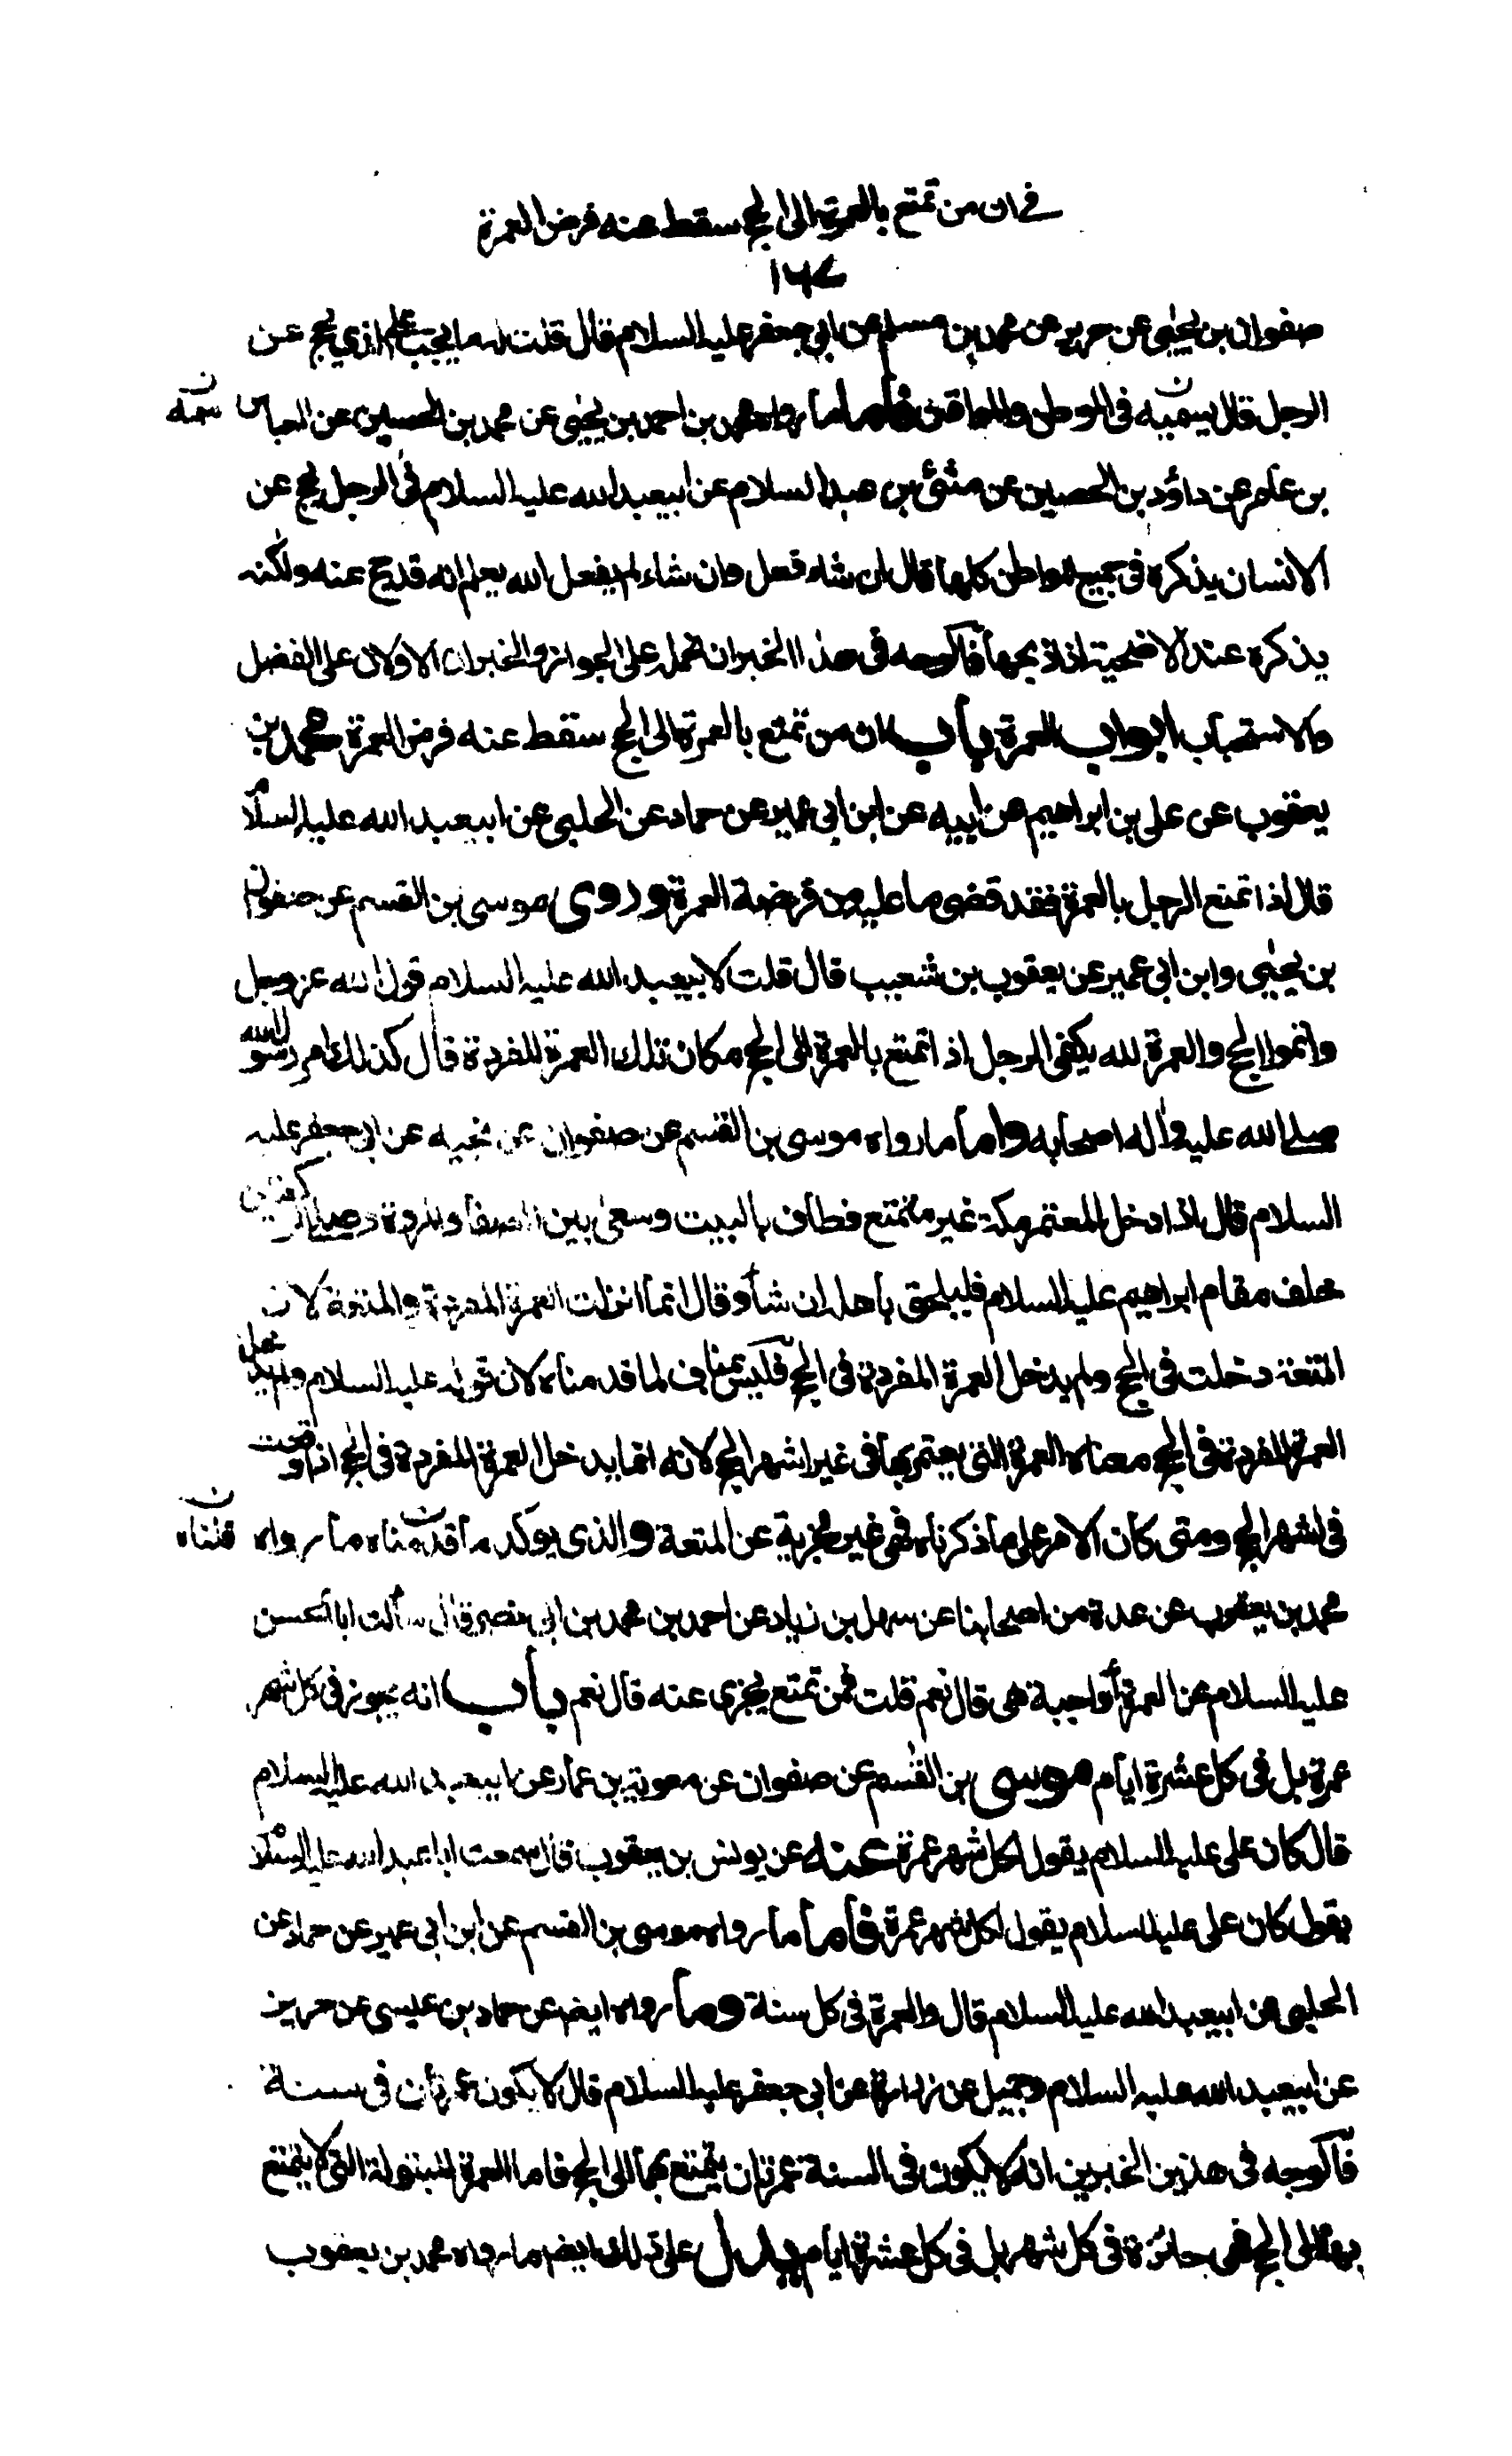 في ان من تمتع بالعمرة الى الحج سقط عنه فرض العمرة
١٦٧
صفوان بن يحيى عن حريز عن محمد بن مسلم عن ابي جعفر عليه السلام قال قلت له ما يجب على الذي يحج عن
الرجل قال يسميه في المواطن والمواقف فاما ما رواه محمد بن احمد بن يحيى عن محمد بن الحسين عن العباس
بن عامر عن داؤد بن الحصين عن مثنى بن عبد السلام عن ابيعبد الله عليه السلام في الرجل يحج عن
الانسان يذكره في جميع المواطن كلها قال ان شاء فعل وان شاء لم يفعل الله يعلم انه قد حج عنه ولكنه
يذكره عند الاضحية اذا ذبحها فالوجه في هذا الخبر ان نحمله على الجواز والخبران الاولان على الفضل
والاستحباب ابواب العمرة باب ان من تمتع بالعمرة الى الحج سقط عنه فرض العمرة محمد بن
يعقوب عن علي بن ابراهيم عن ابيه عن ابن ابي عمير عن حماد عن الحلبي عن ابيعبد الله عليه السلام
قال اذا تمتع الرجل بالعمرة فقد قضى ما عليه من فريضة العمرة وروى موسى بن القسم عن صفوان
بن يحيى وابن ابي عمير عن يعقوب بن شعيب قال قلت لابيعبد الله عليه السلام قول الله عز وجل
واتموا الحج والعمرة لله يكفي الرجل اذا تمتع بالعمرة الى الحج مكان تلك العمرة المفردة قال كذلك امر رسول الله
صلى الله عليه واله اصحابه واما ما رواه موسى بن القسم عن صفوان عن نجيه عن ابي جعفر عليه
السلام قال اذا دخل المعتمر مكة غير متمتع فطاف بالبيت وسعى بين الصفا والمروة وصلى الركعتين
خلف مقام ابراهيم عليه السلام فليلحق باهله ان شاء وقال انما انزلت العمرة المفردة والمتعة لان
المتعة دخلت في الحج ولم يدخل العمرة المفردة في الحج فليس بمناف لما قدمناه لان قوله عليه السلام ولم يدخل
العمرة المفردة في الحج معناه العمرة التي يعتمر بها في غير اشهر الحج لانه انما يدخل العمرة المفردة في الحج اذا وقعت
في اشهر الحج ومتى كان الامر على ما ذكرناه فهي غير مجزية عن المتعة والذي يوكد ما قدمناه ما رواه
محمد بن يعقوب عن عدة من اصحابنا عن سهل بن زياد عن احمد بن محمد بن ابي نصر قال سألت ابا الحسن
عليه السلام عن العمرة أواجبة هي قال نعم قلت فمن تمتع يجزي عنه قال نعم باب انه يجوز في كل شهر
عمرة بل في كل عشرة ايام موسى بن القسم عن صفوان عن معوية بن عمار عن ابيعبد الله عليه السلام
قال كان علي عليه السلام يقول لكل شهر عمرة عنه عن يونس بن يعقوب قال سمعت ابا عبد الله عليه السلام
يقول كان علي عليه السلام يقول لكل شهر عمرة فاما ما رواه موسى بن القسم عن ابن ابي عمير عن حماد عن
الحلبي عن ابيعبد الله عليه السلام قال والعمرة في كل سنة وما رواه ايضا عن حماد بن عيسى عن حريز
عن ابيعبد الله عليه السلام وجميل عن زرارة عن ابي جعفر عليه السلام قال لا يكون عمرتان في سنة
فالوجه في هذين الخبرين انه لا يكون في السنة عمرتان يتمتع بهما الى الحج فاما العمرة المبتولة التي لا يتمتع
بها الى الحج فهي جائزة في كل شهر بل في كل عشرة ايام يدل على ذلك ايضا ما رواه محمد بن يعقوب